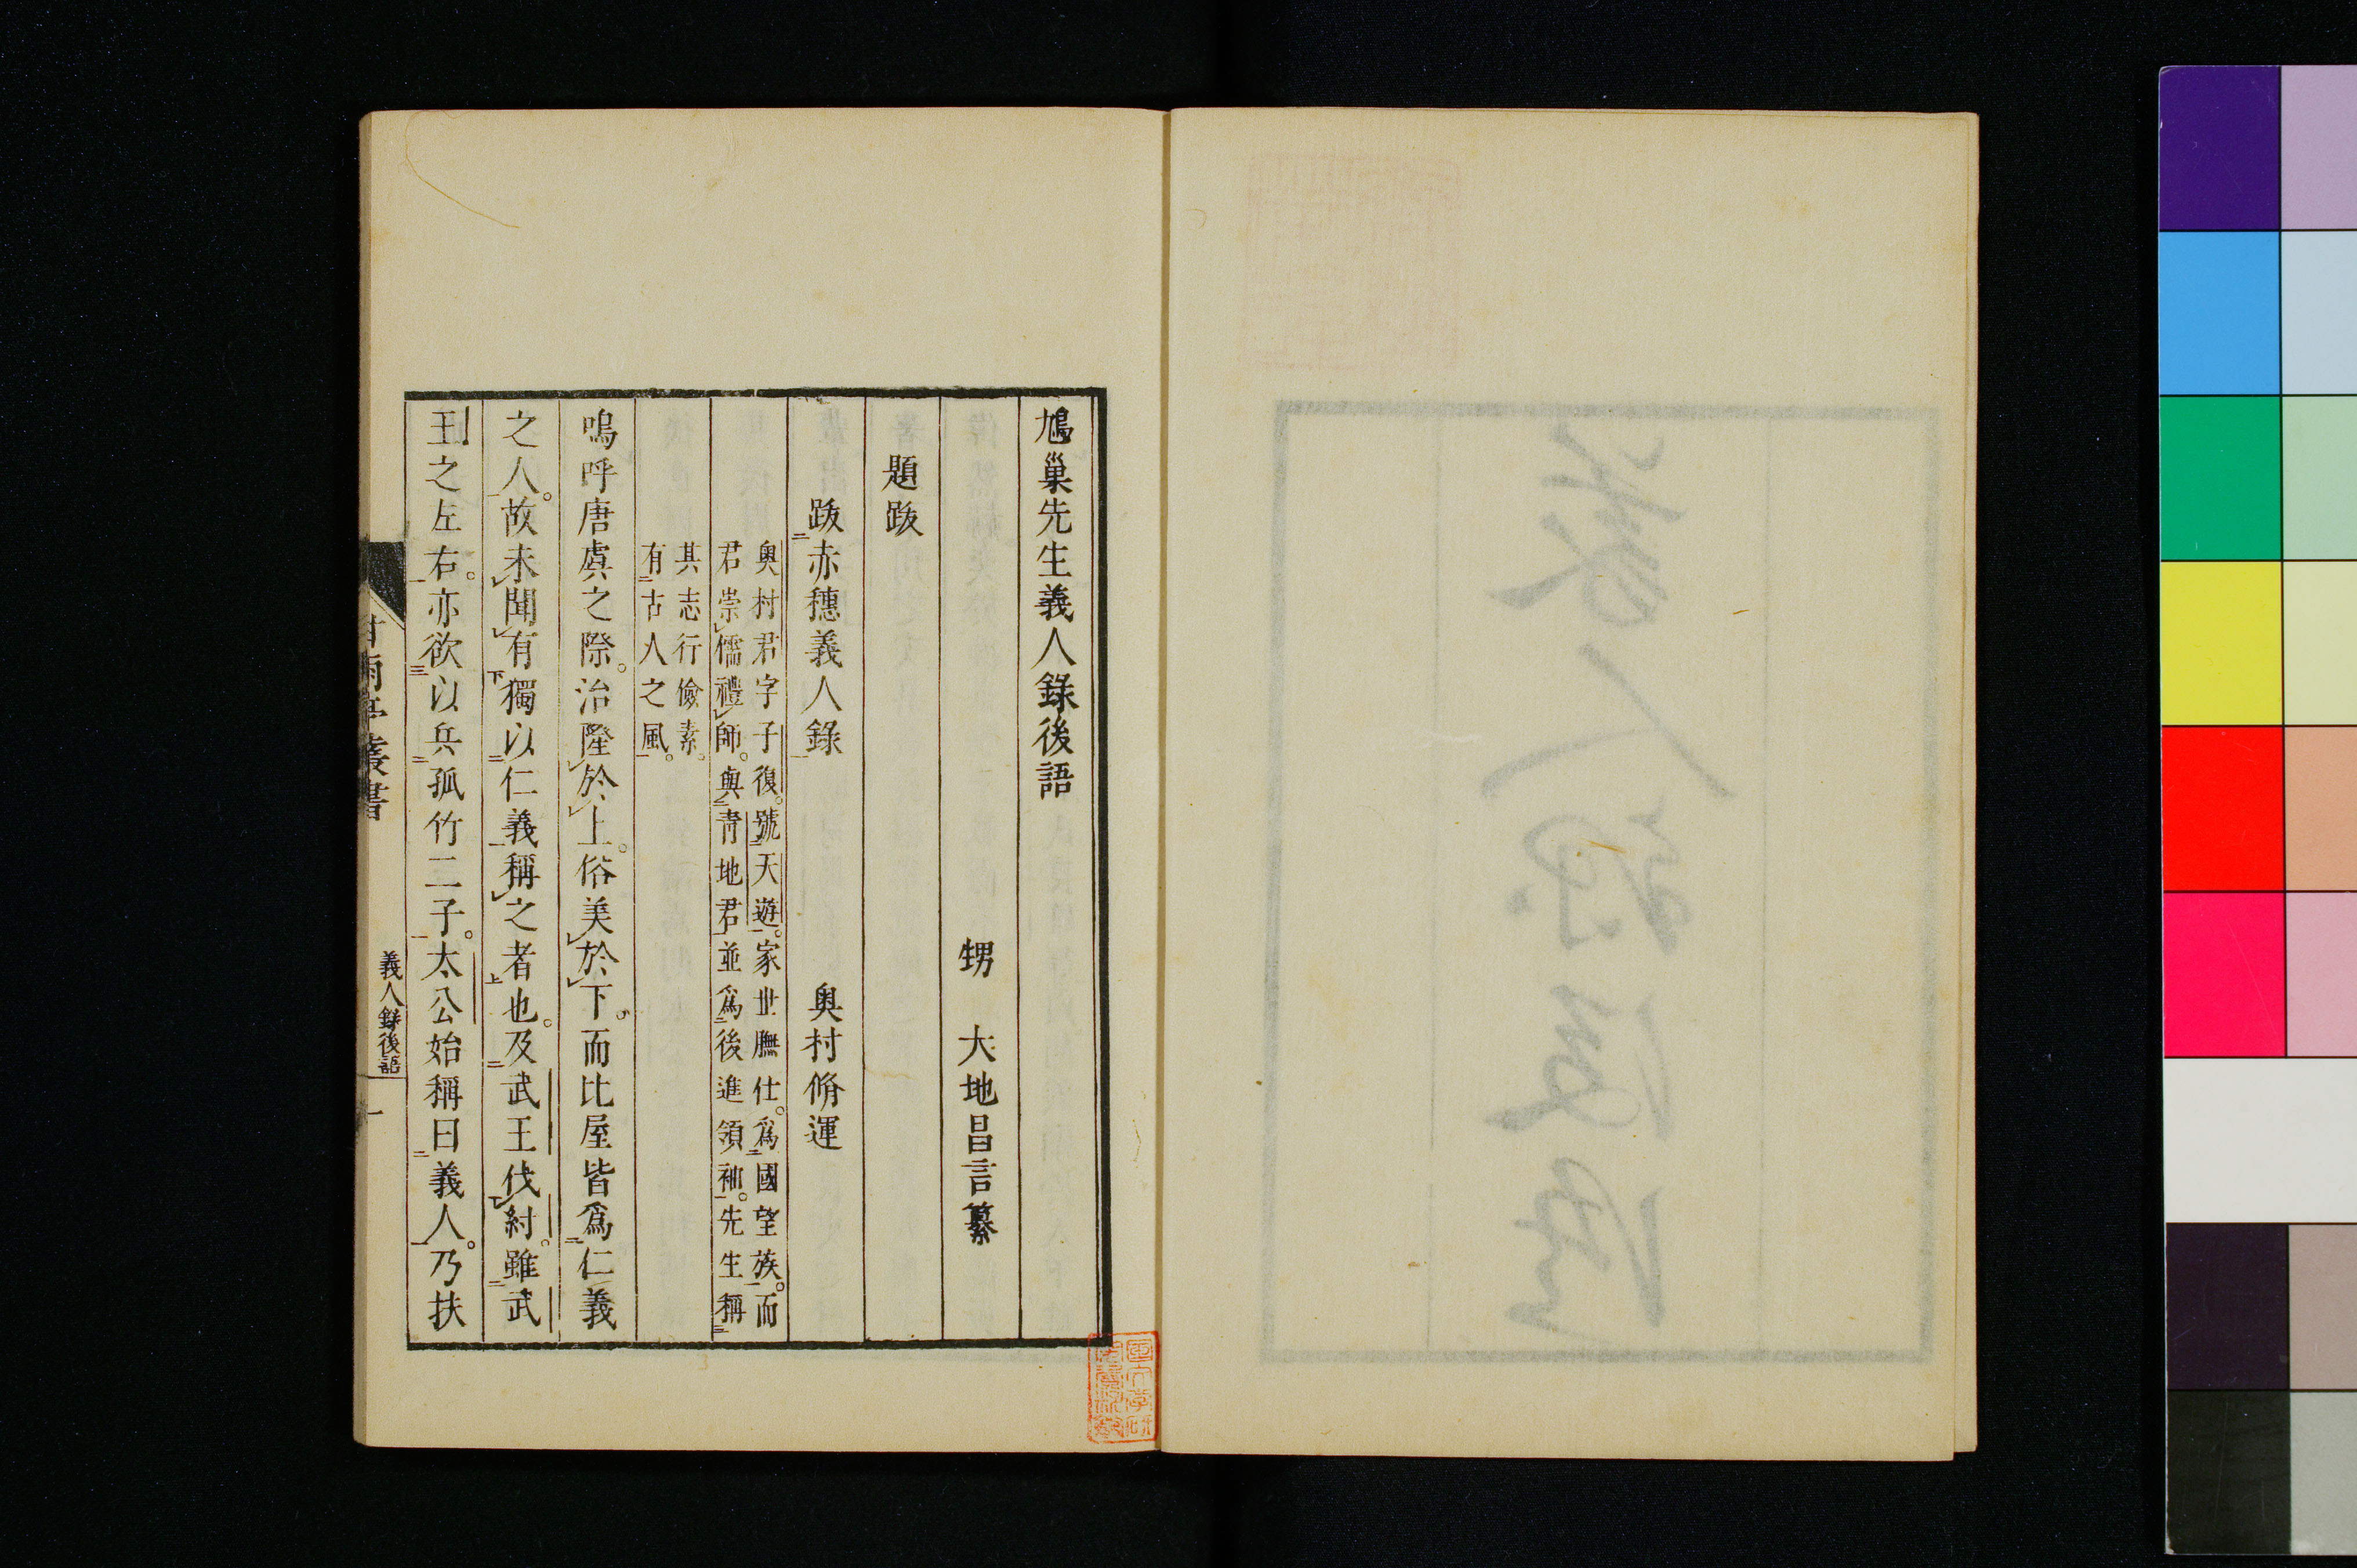 鳩巢先生義人錄後語
甥　大地昌言纂
題跋
跋赤穗義人錄　奥村脩運
奥村君字子復。號天遊。家世膴仕。爲國望族。而
君崇儒禮師。與青地君並爲後進領袖。先生稱
其志行儉素。
有古人之風。
嗚呼唐虞之際。治隆於上。俗美於下。而比屋皆爲仁義
之人。故未聞有獨以仁義稱之者也。及武王伐紂。雖武
王之左右。亦欲以兵孤竹二子。太公始稱曰義人。乃扶
甘雨亭叢書
義人錄後語
一